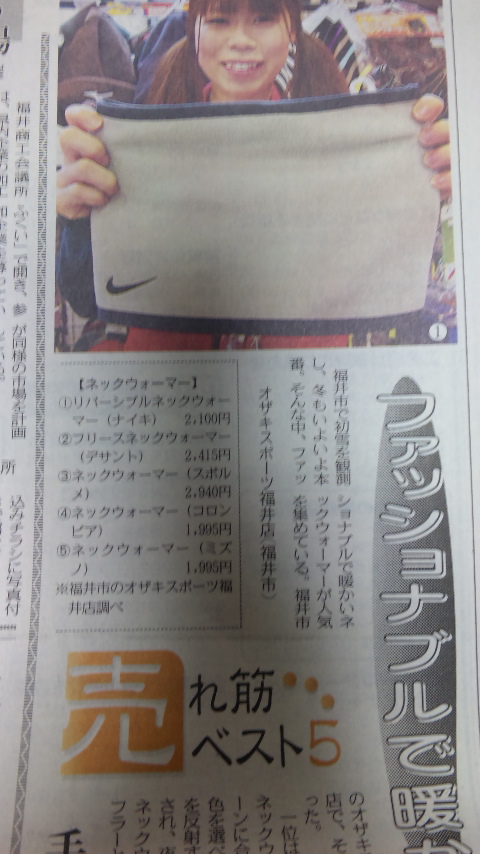 ファッショナブルで暖か
福井市で初雪を観測
し、冬もいよいよ本
番。そんな中、ファッ
ショナブルで暖かいネ
ックウォーマーが人気
を集めている。福井市
オザキスポーツ福井店（福井市）
①
【ネックウォーマー】
①リバーシブルネックウォー
マー（ナイキ） 2,100円
②フリースネックウォーマー
（デサント） 2,415円
③ネックウォーマー（スポル
メ） 2,940円
④ネックウォーマー（コロン
ビア） 1,995円
⑤ネックウォーマー（ミズ
ノ） 1,995円
※福井市のオザキスポーツ福
井店調べ
売れ筋
ベスト5
のオザキ
店で、そ
った。
一位は
ネックウ
ーンに合
色を選べ
を反射す
され、夜
ネックウ
フラード
福井商工会議所
ふくい」で開き、参
が同様の市場を計画
所
込みチラシに写真付